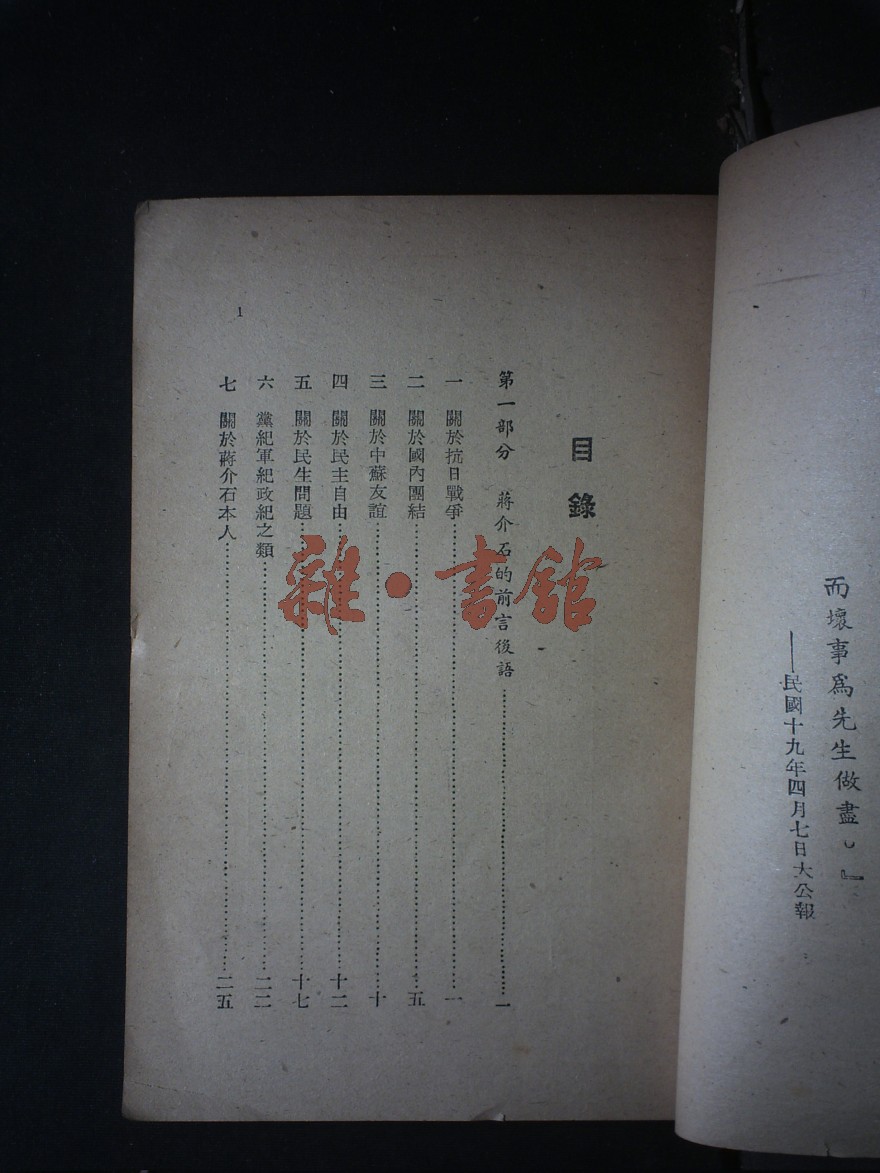 而壞事爲先生做盡。』
——民國十九年四月七日大公報
目錄
第一部分 蔣介石的前言後語……一
一 關於抗日戰爭……一
二 關於國內團結……五
三 關於中蘇友誼……十
四 關於民主自由……十二
五 關於民生問題……十七
六 黨紀軍紀政紀之類……二二
七 關於蔣介石本人……二五
1
雜·書館